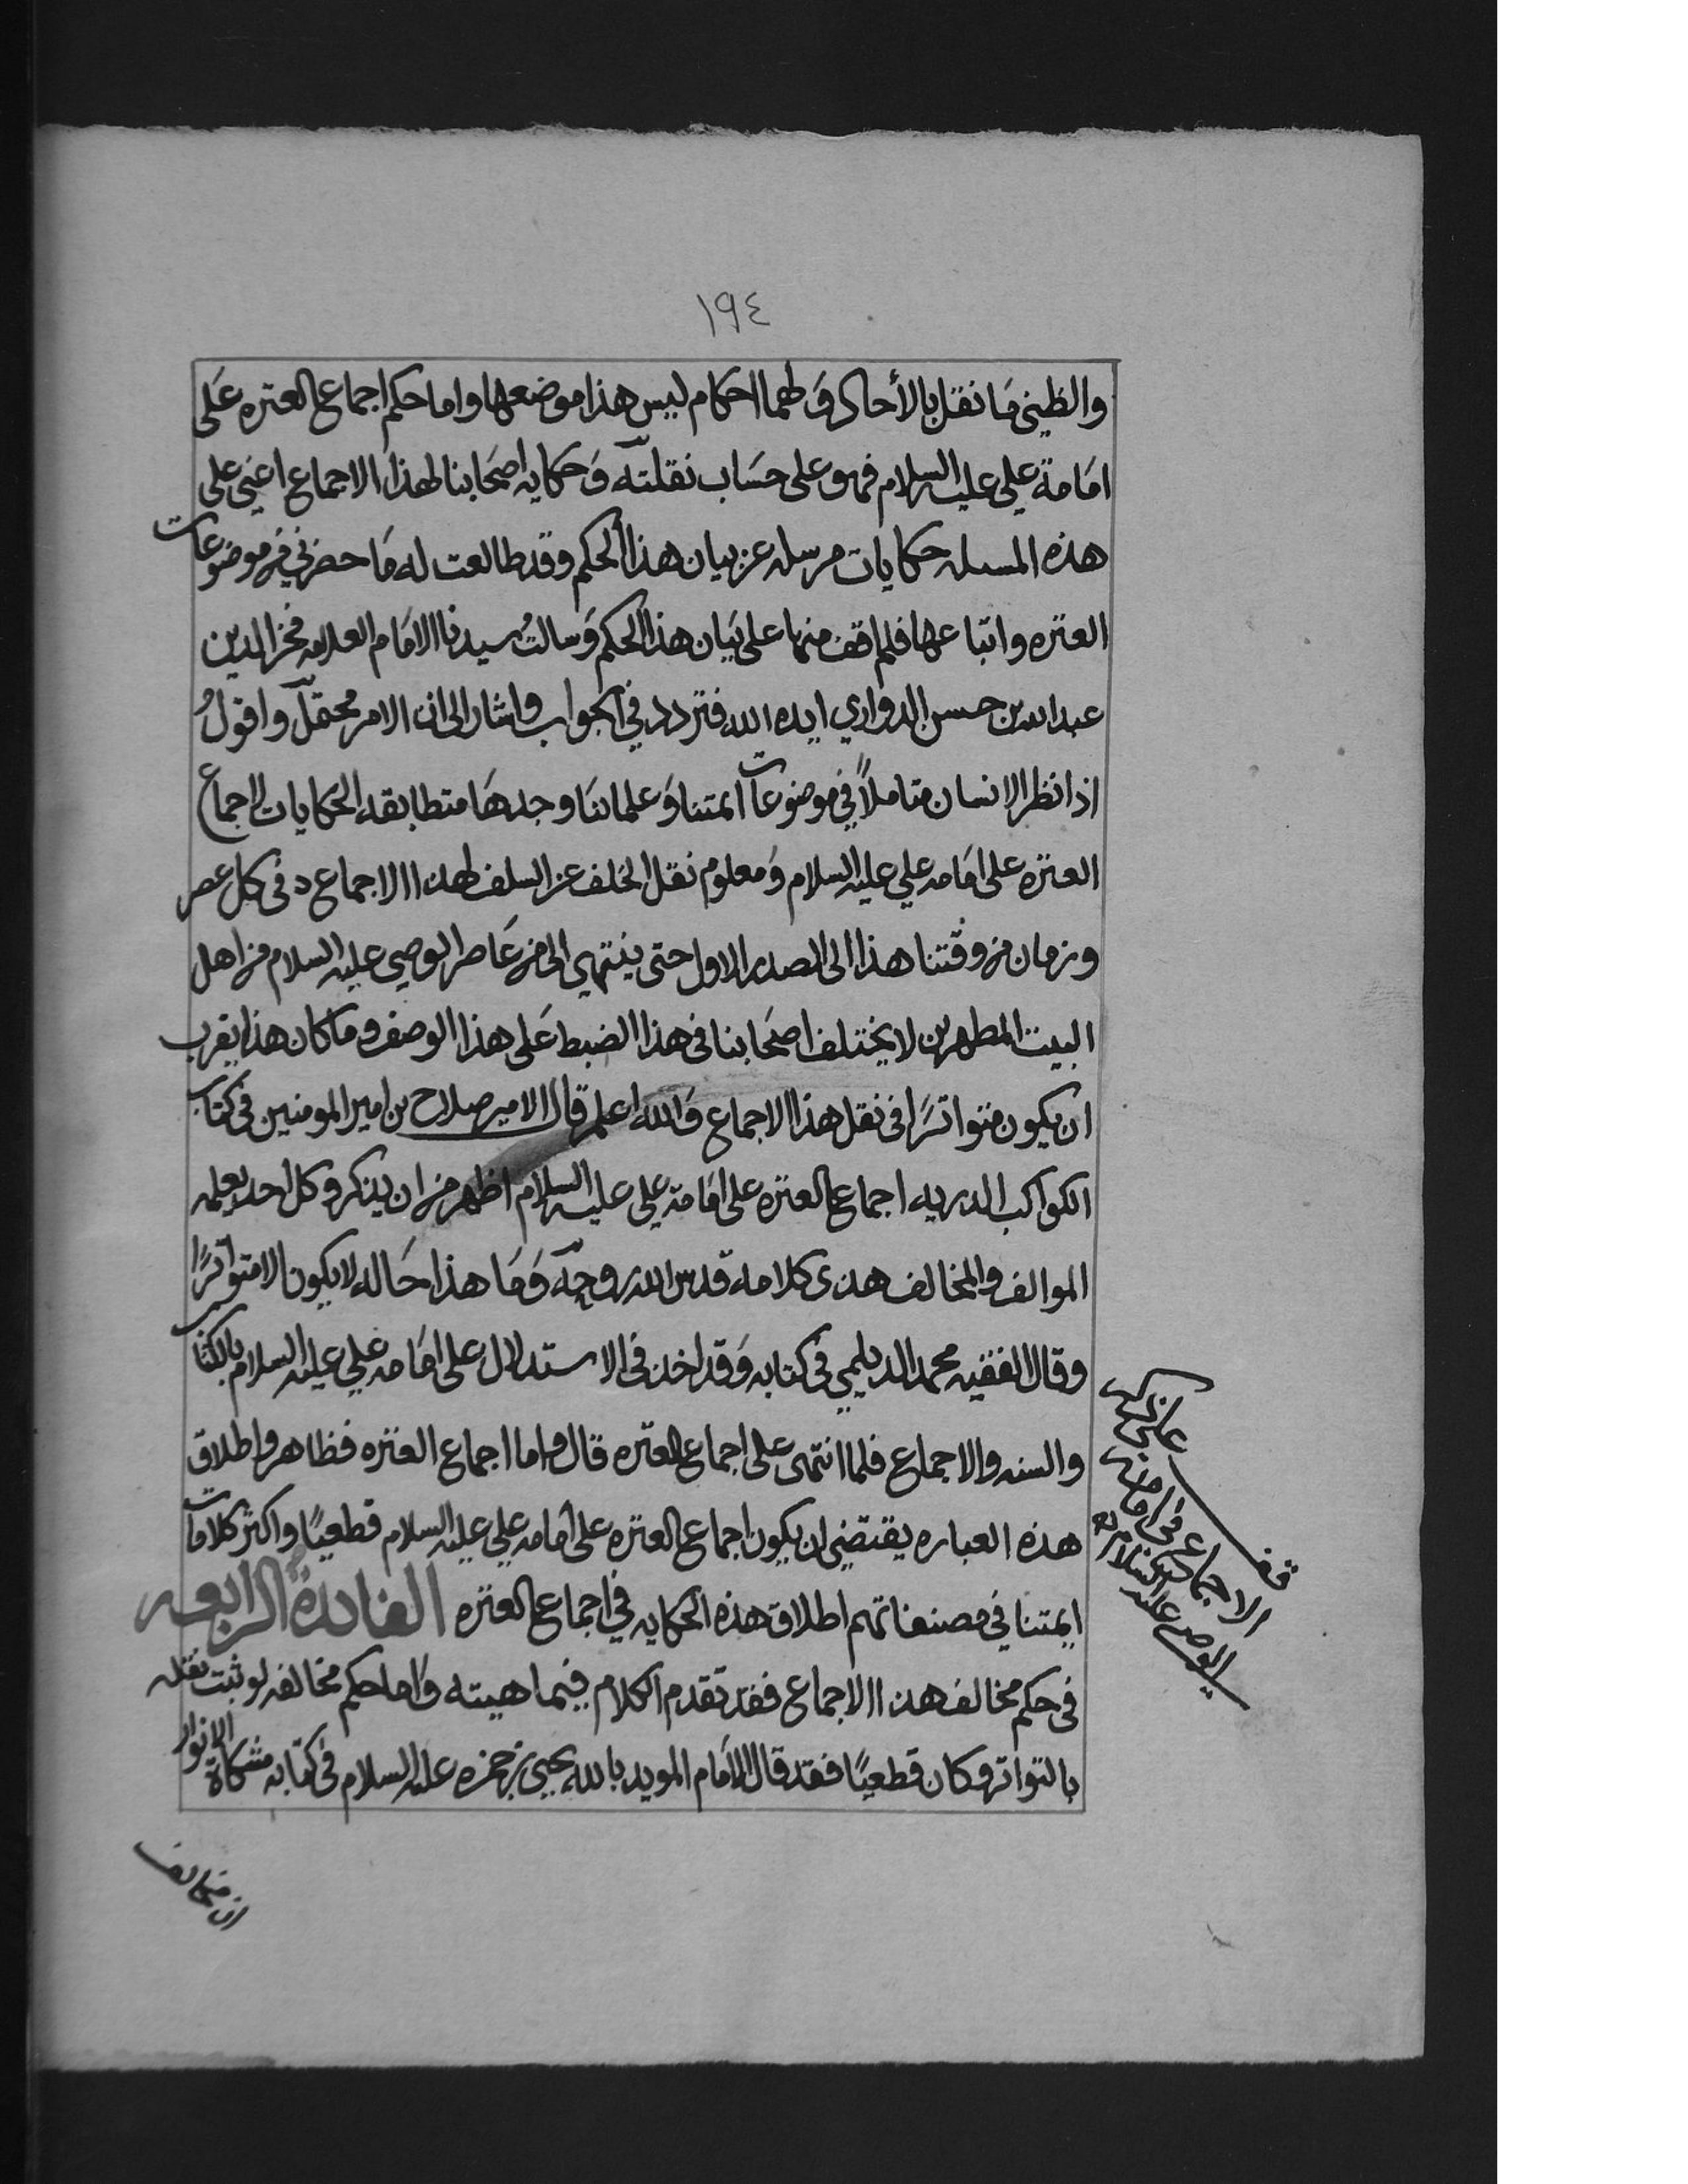 ١٩٤
والظني ما نقل بالأحاد ولهما احكام ليس هذا موضعها واما حكم اجماع العتره على
امامة علي عليه السلام فهو على حساب نقلته وحكايه اصحابنا لهذا الاجماع اعني على
هذه المسله حكايات مرسله عن بيان هذا الحكم وقد طالعت له ما حضرني من موضوعات
العتره واتباعها فلم اقف منها على بيان هذا الحكم وسالت سيدنا الامام العلامه فخر الدين
عبدالله بن حسن الدواري ايده الله فتردد في الجواب واشار الى ان الامر محتمل واقولُ
اذا نظر الانسان متاملاً في موضوعات ائمتنا وعلمائنا وجدها متطابقه الحكايات لاجماع
العتره على امامه علي عليه السلام ومعلوم نقل الخلف عن السلف لهذا الاجماع في كل عصر
وزمان من وقتنا هذا الى الصدر الاول حتى ينتهي الى من عاصر الوصي عليه السلام من اهل
البيت المطهرين لا يختلف اصحابنا في هذا الضبط على هذا الوصف وما كان هذا يقرب
ان يكون متواترًا في نقل هذا الاجماع والله اعلم قال الامير صلاح بن امير المومنين في كتاب
الكواكب الدريه اجماع العتره على امامة علي عليه السلام اظهر من ان يذكر وكل احد يعلمه
الموالف والمخالف هذى كلامه قدس الله روحه وما هذا حاله لا يكون الا متواترًا
وقال الفقيه محمد الديلمي في كتابه وقد اخذ في الاستدلال على امامه علي عليه السلام بالكتاب
والسنه والاجماع فلما انتهى على اجماع العتره قال واما اجماع العتره فظاهر واطلاق
هذه العباره يقتضي ان يكون اجماع العتره على امامه علي عليه السلام قطعيًا واكثر كلامات
ايمتنا في مصنفاتهم اطلاق هذه الحكايه في اجماع العتره الفائدة الرابعه
في حكم مخالف هذا الاجماع فقد تقدم الكلام في ماهيته واما حكم مخالفه لو ثبت نقله
بالتواتر وكان قطعيًا فقد قال الامام المويد بالله يحيى بن حمزه عليه السلام في كتابه مشكاة الانوار
قف
الاجماع في امامة
الوصي عليه السلام
ان مخالف